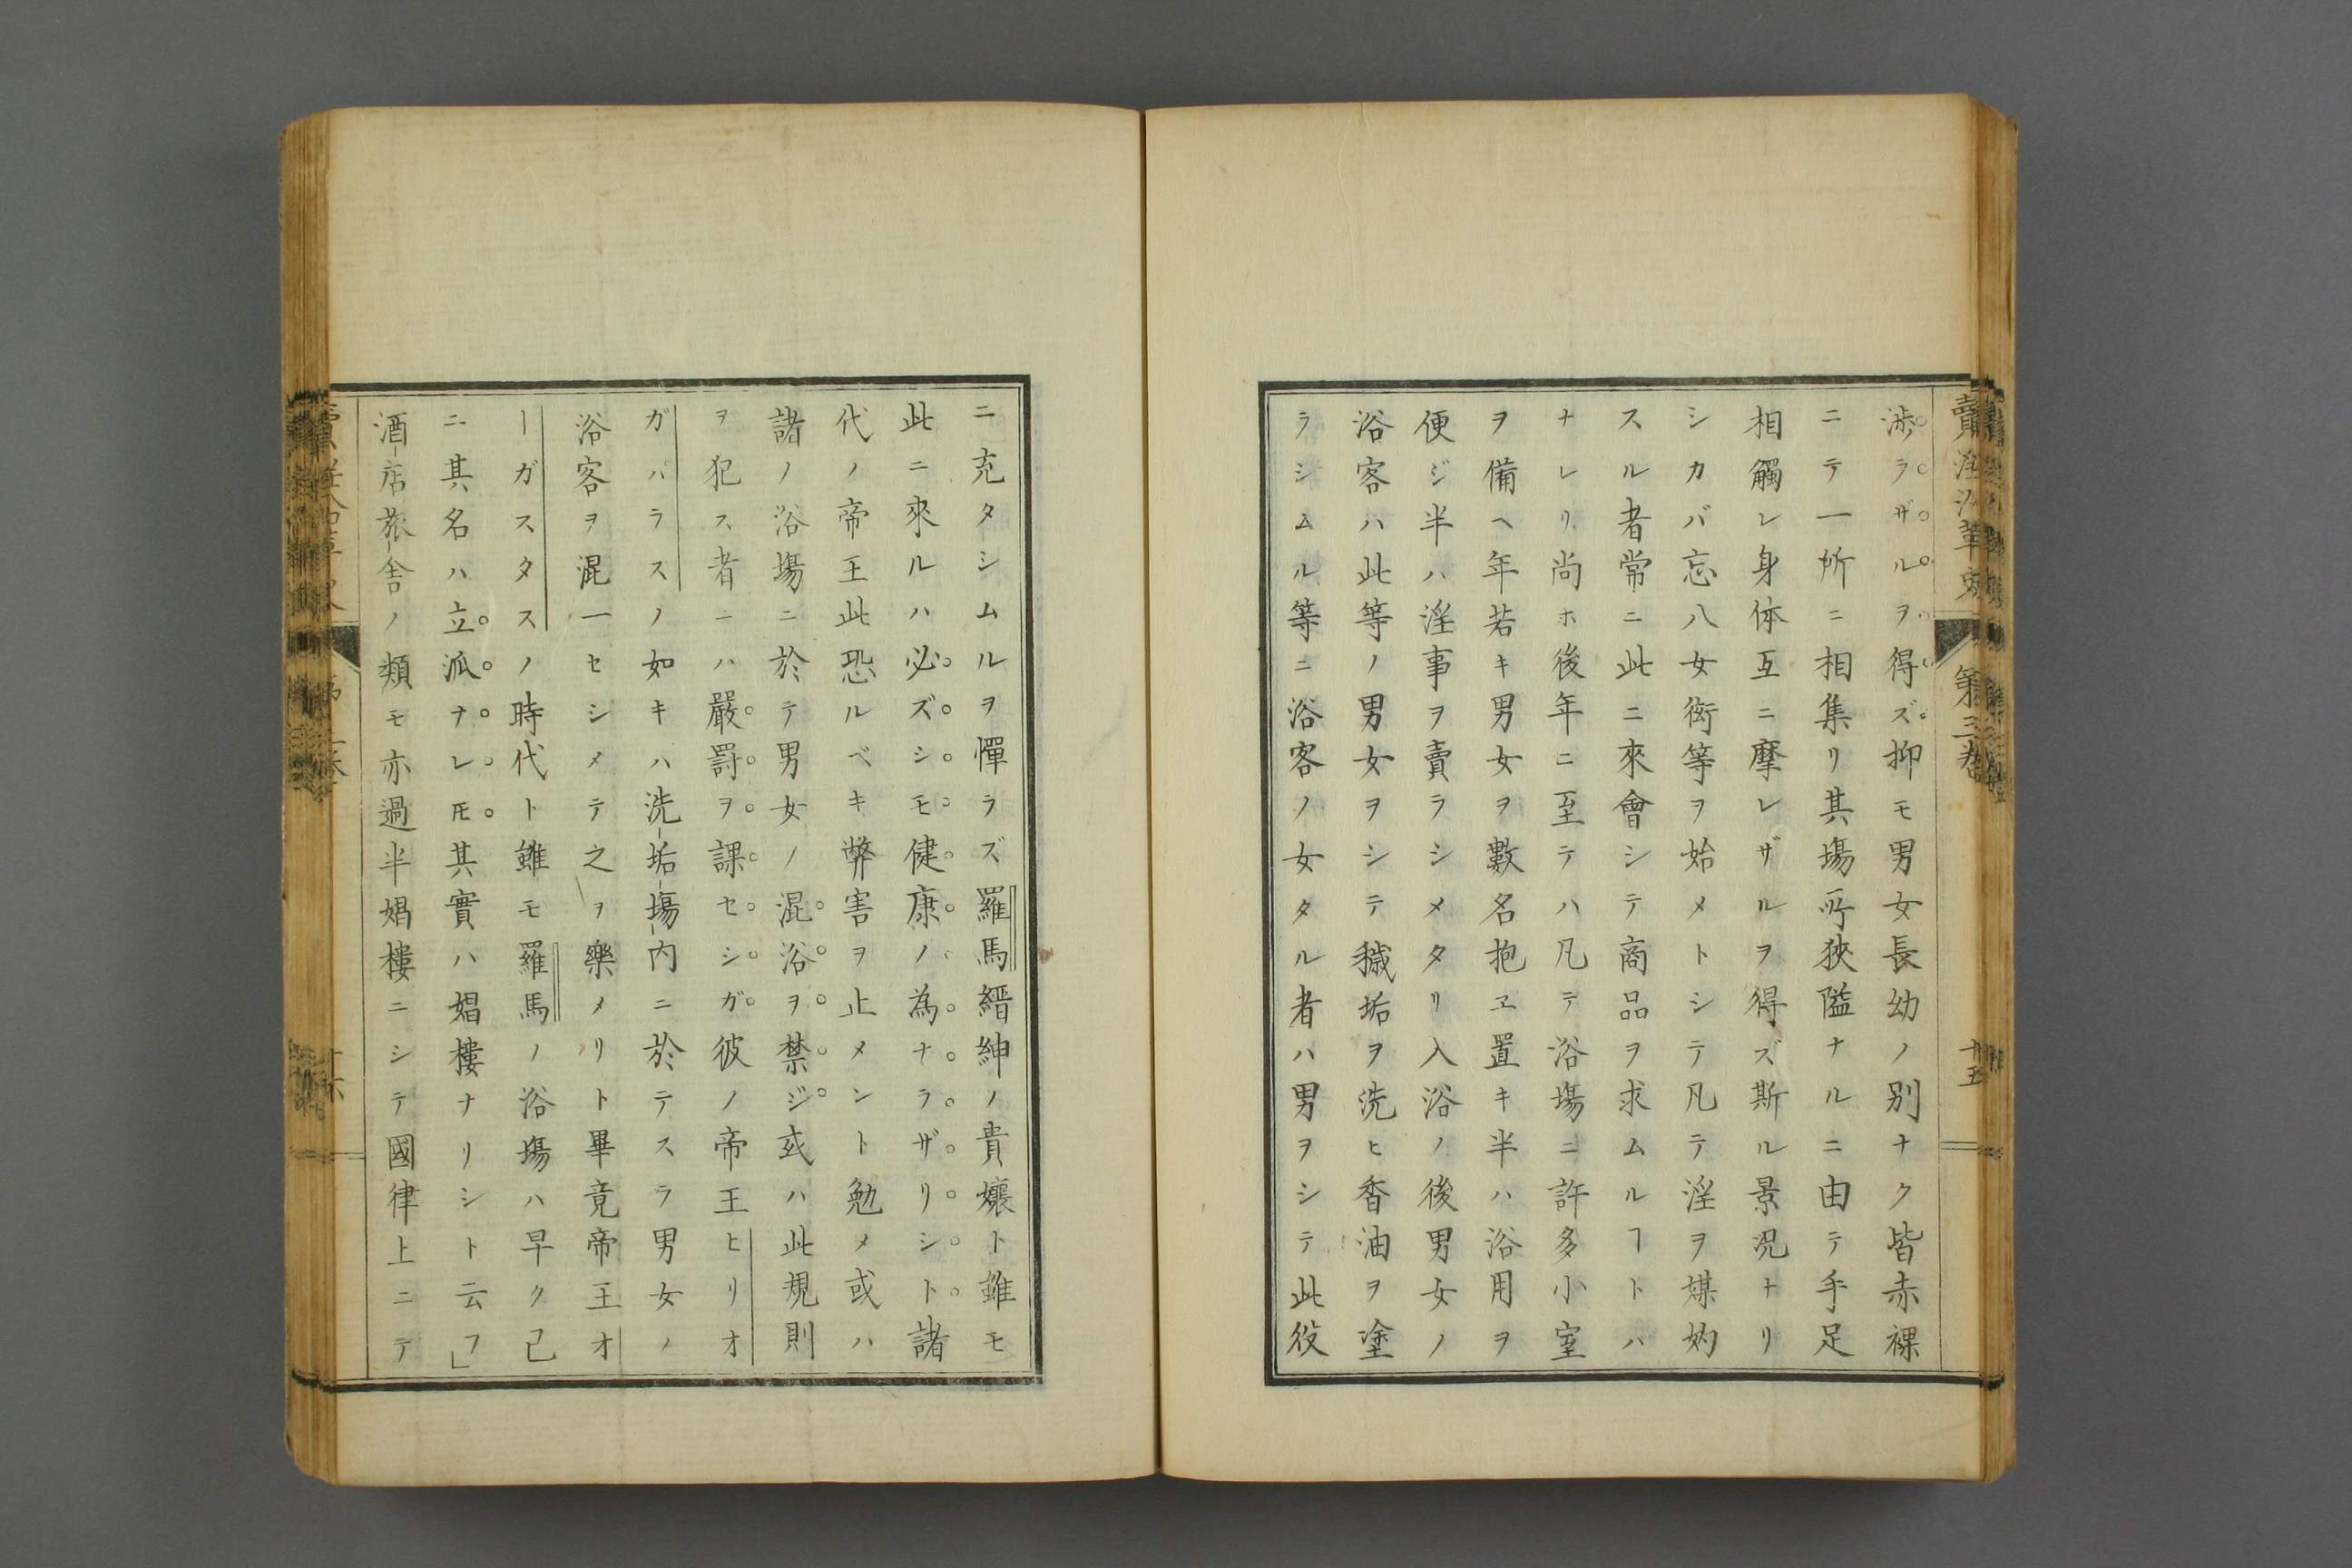 賣淫沿革史
第三卷
十五
渉ラザルヲ得ズ抑モ男女長幼ノ別ナク皆赤裸
ニテ一所ニ相集リ其塲所狹隘ナルニ由テ手足
相觸レ身体互ニ摩レザルヲ得ズ斯ル景況ナリ
シカバ忘八女衒等ヲ始メトシテ凡テ淫ヲ媒妁
スル者常ニ此ニ來會シテ商品ヲ求ムルヿトハ
ナレリ尚ホ後年ニ至テハ凡テ浴塲ニ許多小室
ヲ備ヘ年若キ男女ヲ數名抱ヱ置キ半ハ浴用ヲ
便ジ半ハ淫事ヲ賣ラシメタリ入浴ノ後男女ノ
浴客ハ此等ノ男女ヲシテ穢垢ヲ洗ヒ香油ヲ塗
ラシムル等ニ浴客ノ女タル者ハ男ヲシテ此役
ニ充タシムルヲ憚ラズ羅馬縉紳ノ貴孃ト雖モ
此ニ來ルハ必ズシモ健康ノ為ナラザリシト諸
代ノ帝王此恐ルベキ弊害ヲ止メント勉メ或ハ
諸ノ浴塲ニ於テ男女ノ混浴ヲ禁ジ或ハ此規則
ヲ犯ス者ニハ嚴罰ヲ課セシガ彼ノ帝王ヒリオ
ガバラスノ如キハ洗垢塲内ニ於テスラ男女ノ
浴客ヲ混一セシメテ之ヲ樂メリト畢竟帝王オ
ーガスタスノ時代ト雖モ羅馬ノ浴塲ハ早ク已
ニ其名ハ立派ナレ𪜈其實ハ娼樓ナリシト云フ」
酒店旅舎ノ類モ亦過半娼樓ニシテ國律上ニテ